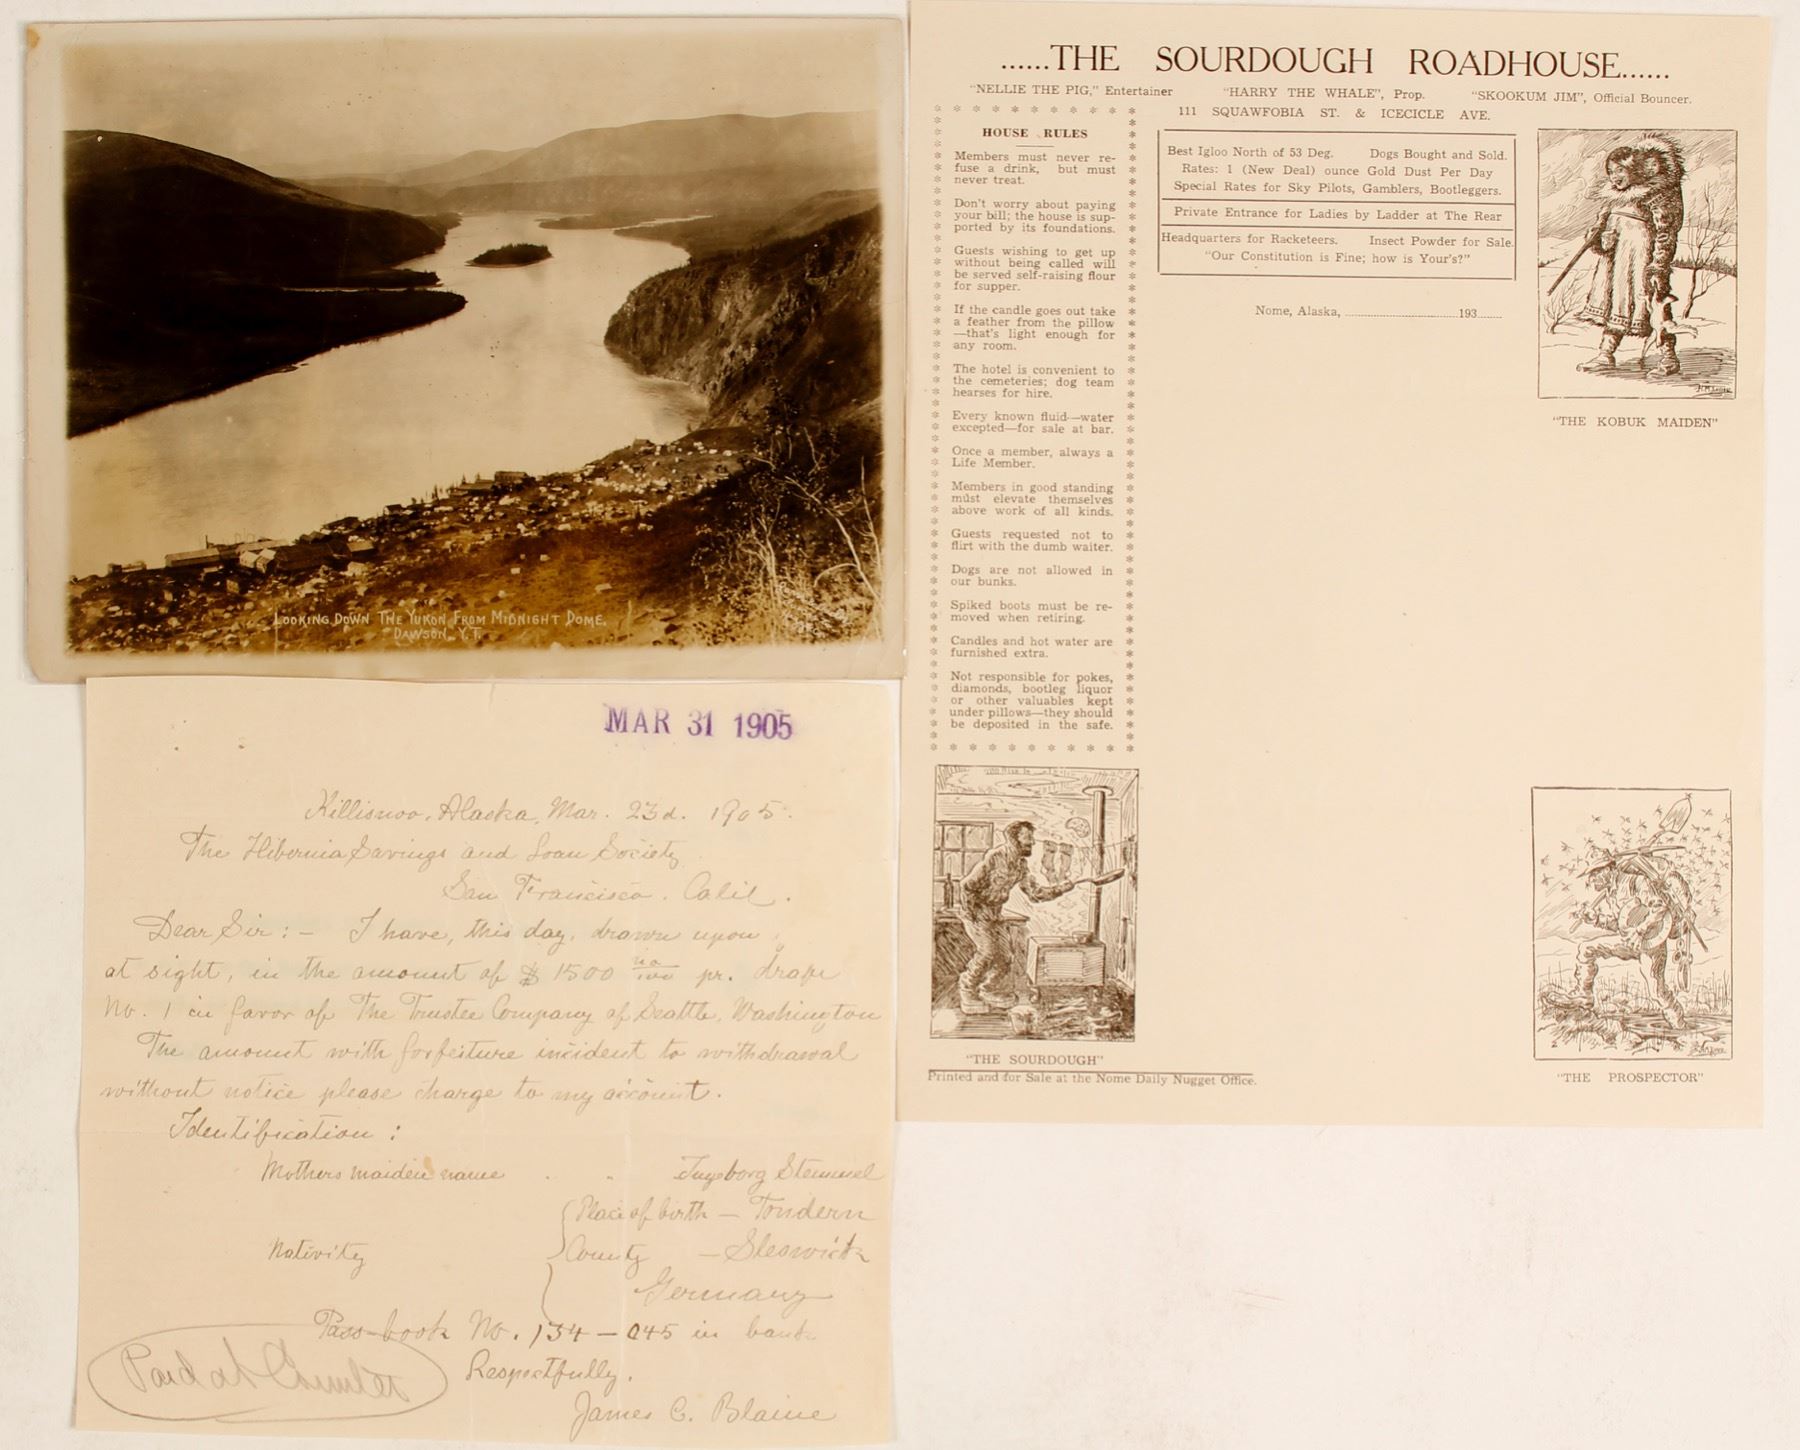 LOOKING DOWN THE YUKON FROM MIDNIGHT DOME.
DAWSON, Y.T.
......THE SOURDOUGH ROADHOUSE......
"NELLIE THE PIG," Entertainer "HARRY THE WHALE", Prop. "SKOOKUM JIM", Official Bouncer.
111 SQUAWFOBIA ST. & ICECICLE AVE.
HOUSE RULES
Members must never re-
fuse a drink, but must
never treat.
Don't worry about paying
your bill; the house is sup-
ported by its foundations.
Guests wishing to get up
without being called will
be served self-raising flour
for supper.
If the candle goes out take
a feather from the pillow
—that's light enough for
any room.
The hotel is convenient to
the cemeteries; dog team
hearses for hire.
Every known fluid—water
excepted—for sale at bar.
Once a member, always a
Life Member.
Members in good standing
must elevate themselves
above work of all kinds.
Guests requested not to
flirt with the dumb waiter.
Dogs are not allowed in
our bunks.
Spiked boots must be re-
moved when retiring.
Candles and hot water are
furnished extra.
Not responsible for pokes,
diamonds, bootleg liquor
or other valuables kept
under pillows—they should
be deposited in the safe.
Best Igloo North of 53 Deg. Dogs Bought and Sold.
Rates: 1 (New Deal) ounce Gold Dust Per Day
Special Rates for Sky Pilots, Gamblers, Bootleggers.
Private Entrance for Ladies by Ladder at The Rear
Headquarters for Racketeers. Insect Powder for Sale.
"Our Constitution is Fine; how is Your's?"
Nome, Alaska, ..............................193......
"THE KOBUK MAIDEN"
"THE SOURDOUGH"
Printed and for Sale at the Nome Daily Nugget Office.
"THE PROSPECTOR"
MAR 31 1905
Killisnoo, Alaska, Mar. 23d. 1905.
The Hibernia Savings and Loan Society
San Francisco. Calif.
Dear Sir:- I have, this day, drawn upon
at sight, in the amount of $ 1500 no/100 pr. draft
No. 1 in favor of The Trustee Company of Seattle, Washington
The amount with forfeiture incident to withdrawal
without notice please charge to my account.
Identification:
Mothers maiden name . . Ingeborg Stemmel
Nativity
Place of birth - Tondern
County - Sleswick
Germany
Pass-book No. 134-045 in bank
Respectfully.
James C. Blaine
Paid at